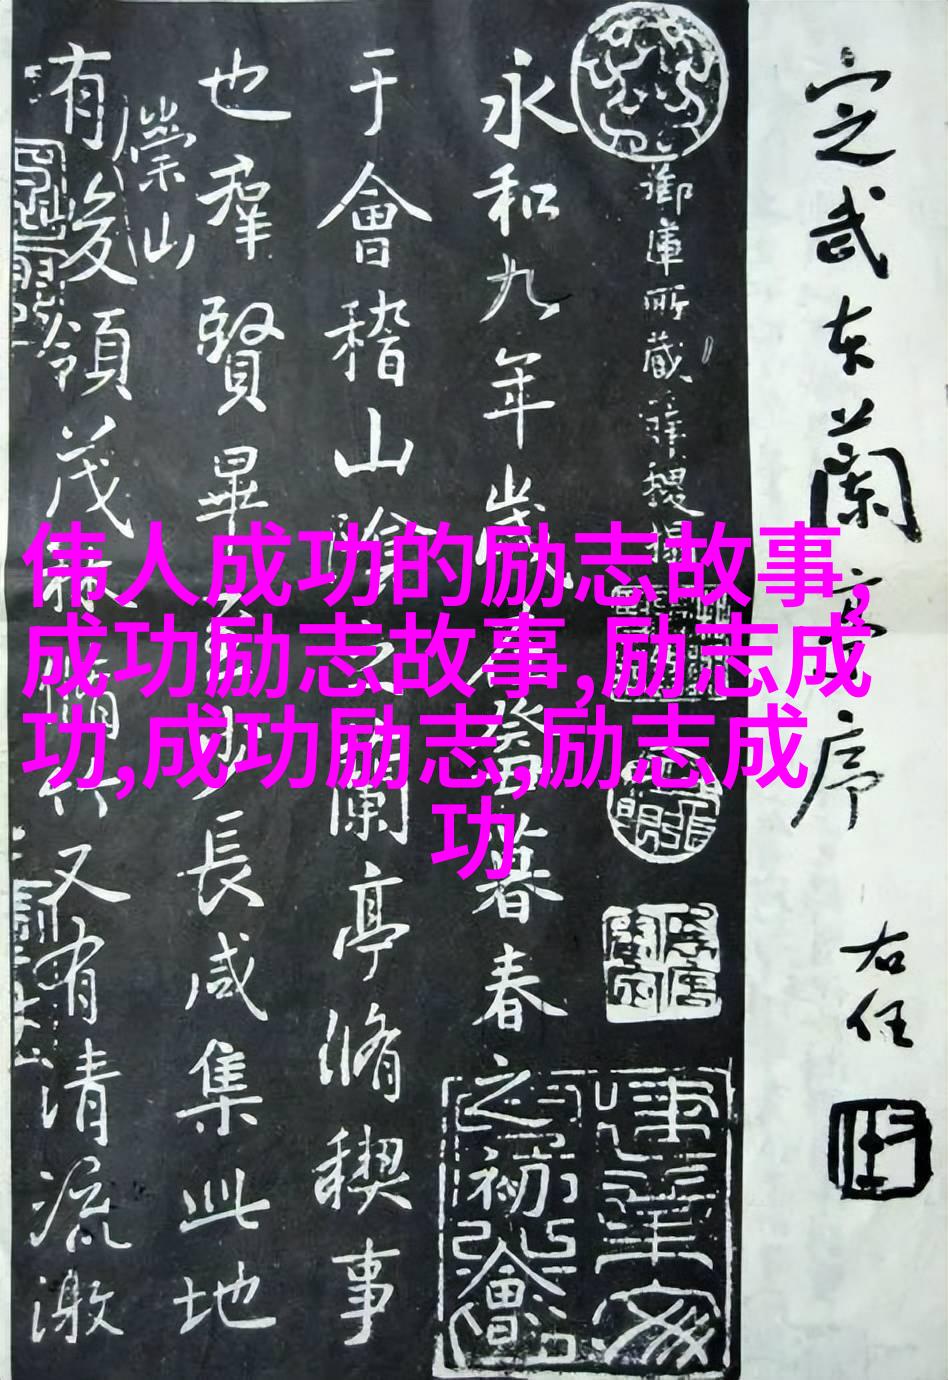 定武本蘭亭序
右任
御庫所藏薛稷
永和九年歲在癸丑暮春之初會
于會稽山陰之蘭亭脩稧事
也羣賢畢至少長咸集此地
崇山
有峻領茂林脩竹又有清流激
伟人成功的励志故事,
成功励志故事,励志成
功,成功励志,励志成
功